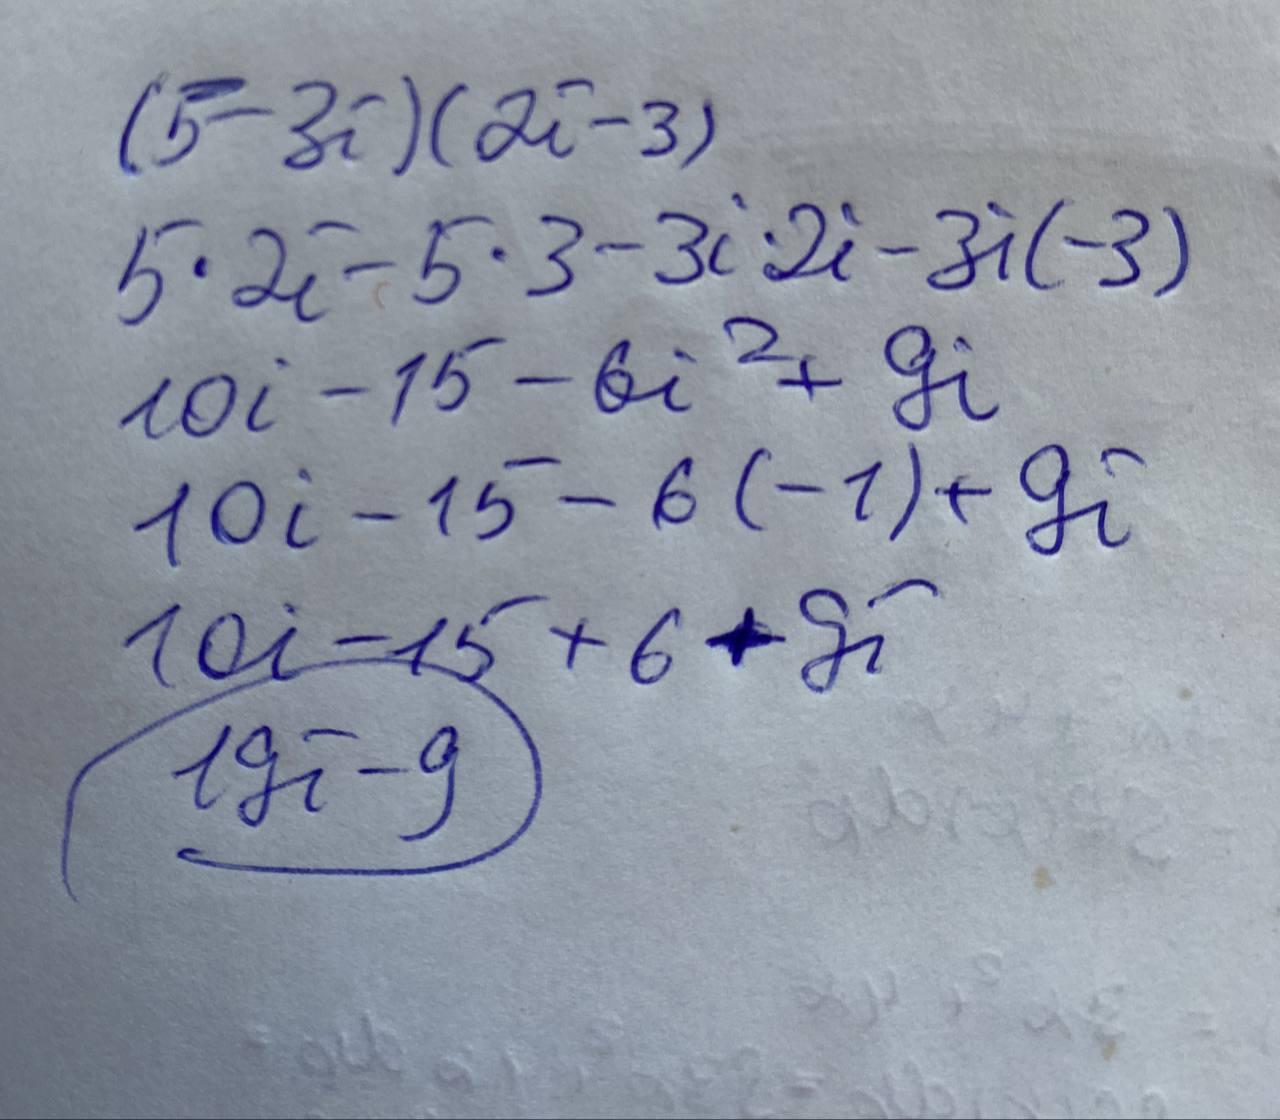 (5-3i)(2i-3)
5·2i-5·3-3i·2i-3i(-3)
10i-15-6i²+9i
10i-15-6(-1)+9i
10i-15+6+9i
19i-9